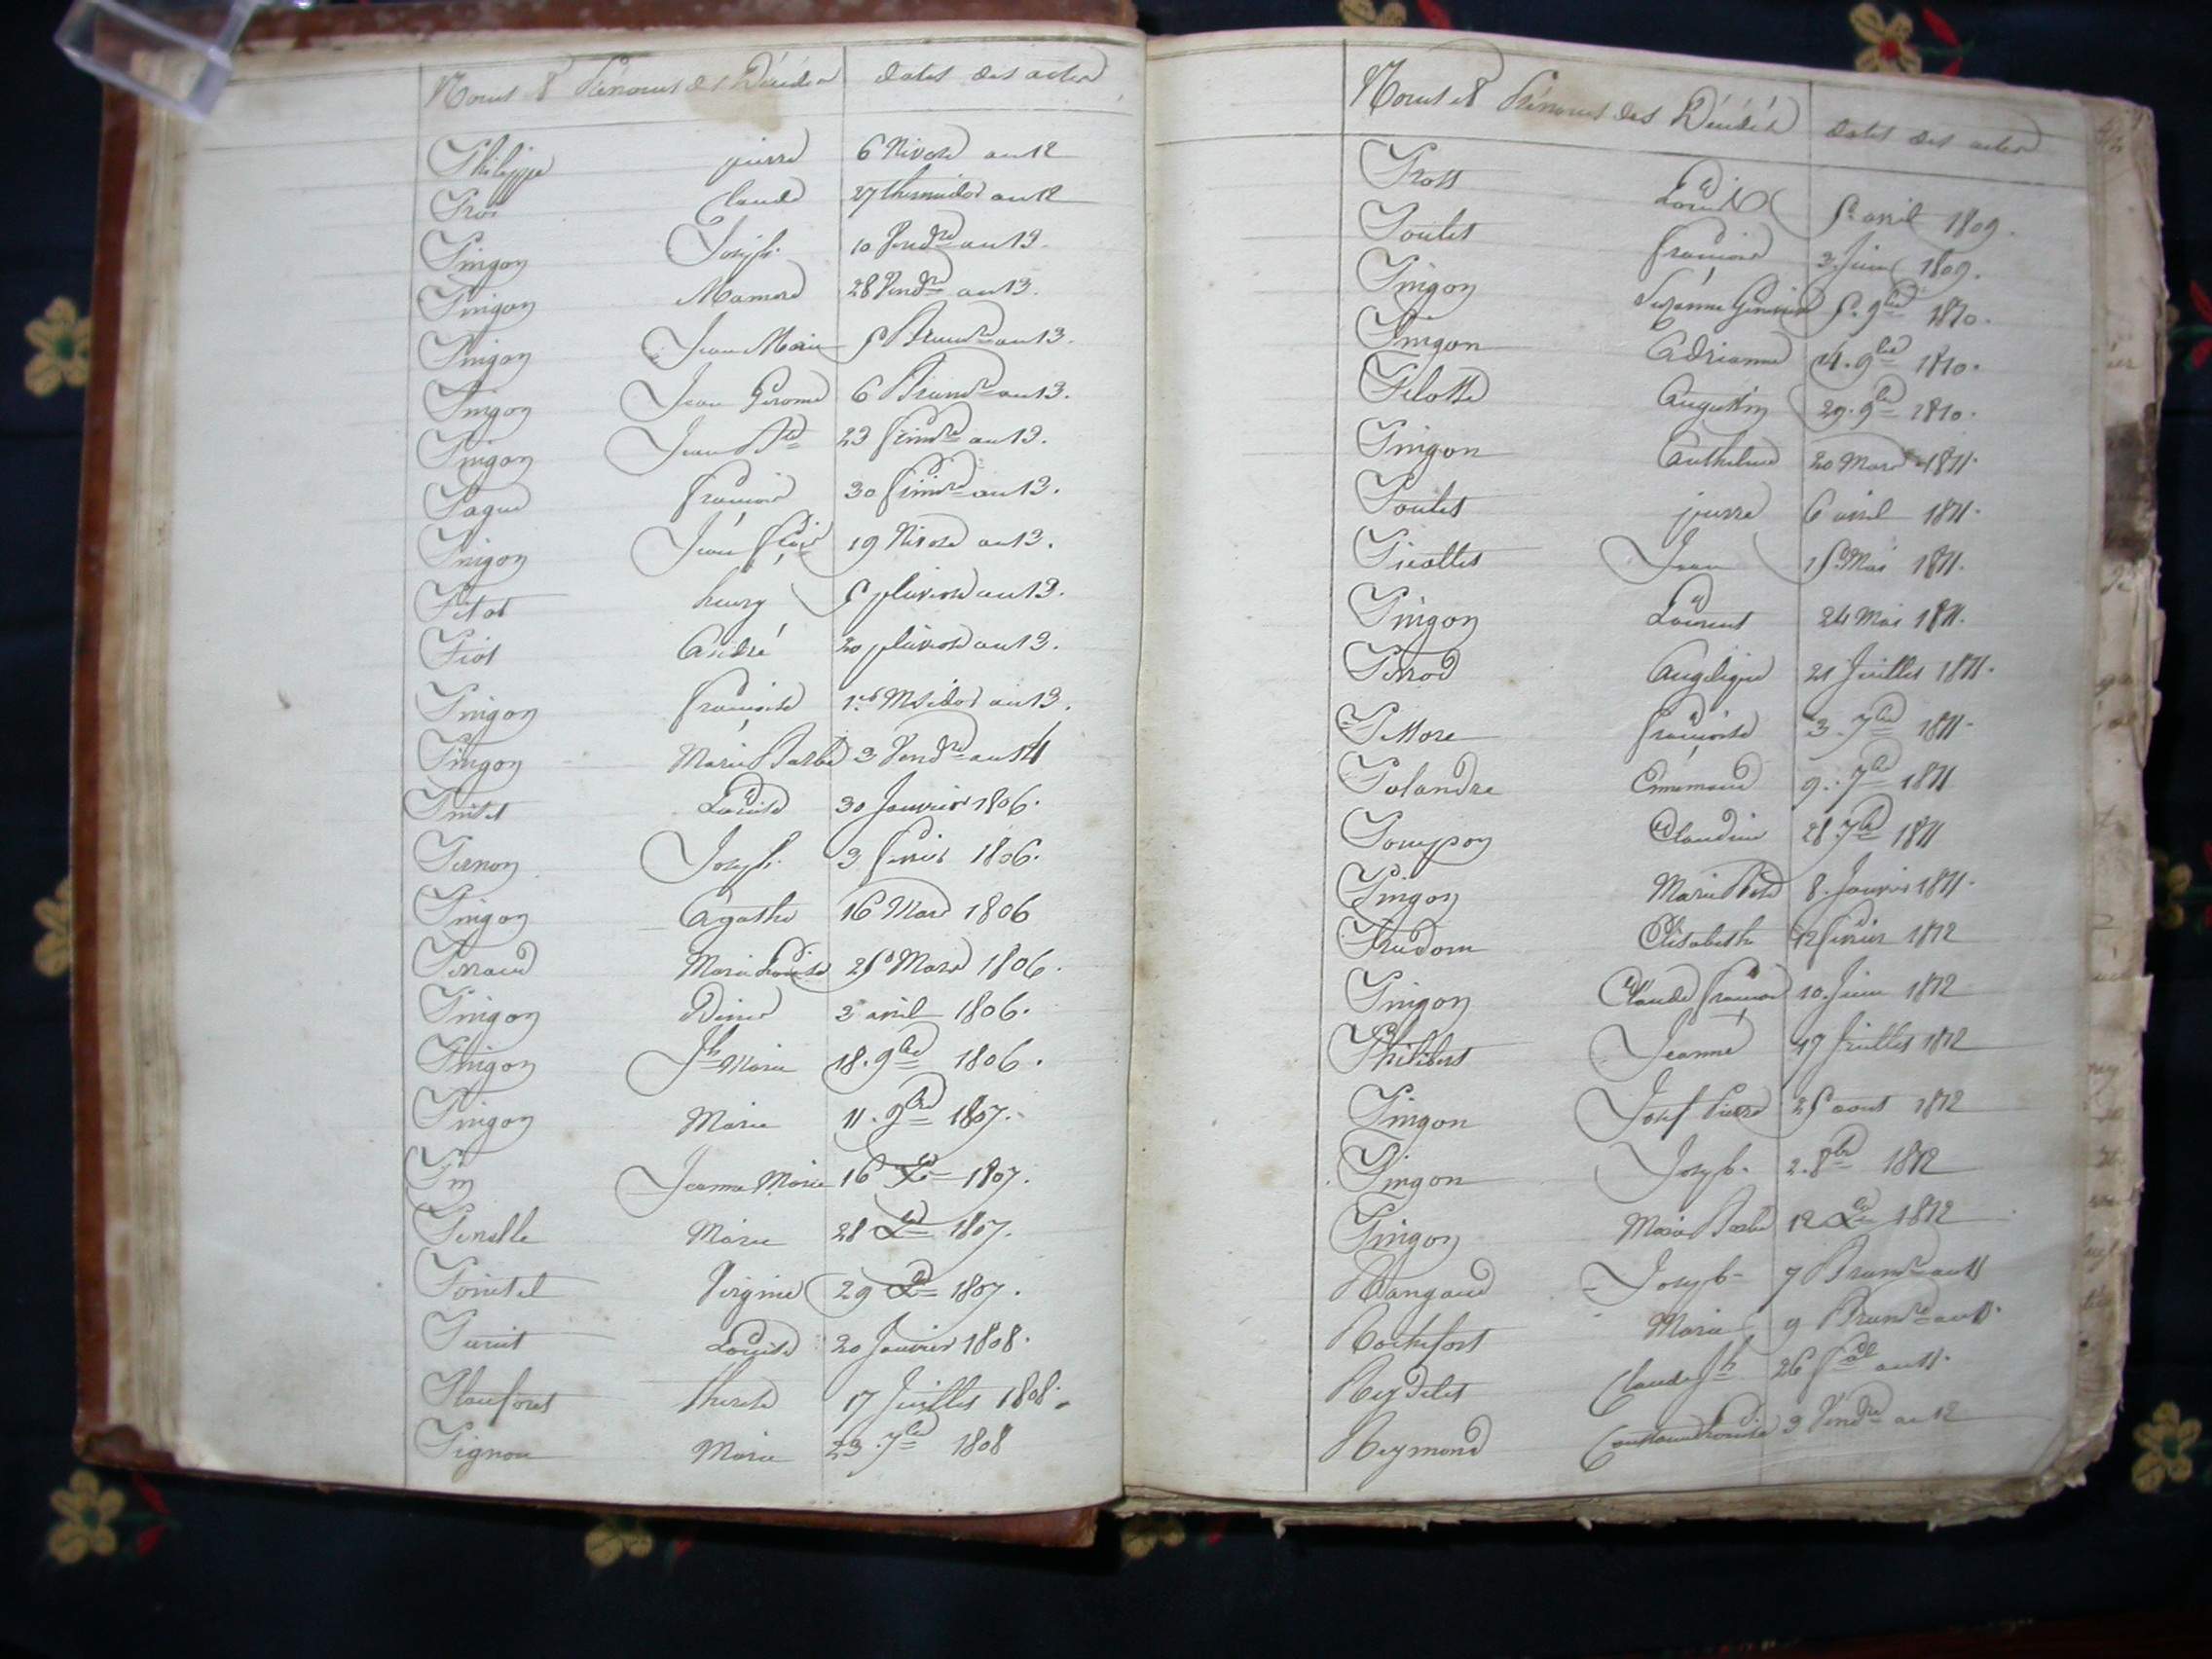 Noms & Prénoms des Décédés dates des actes
Philippe pierre 6 Nivose an 12
Claude 27 thermidor an 12
Pingon Joseph 10 Vend.re an 13.
Pingon Mamerd 28 Vend.re an 13.
Pingon Jean Marie 5 Brum.re an 13.
Pingon Jean Gerome 6 Brum.re an 13.
Pingon Jean B.te 23 frim.re an 13.
Pague françois 30 frim.re an 13.
Pingon Jean 19 Nivose an 13.
Pitot henry 5 pluviose an 13.
Piot André 20 pluviose an 13.
Pingon françoise 1.er Msidor an 13.
Pingon Marie Barbe 3 Vend.re an 14
Louise 30 Janvier 1806.
Pernon Joseph 3 fevrier 1806.
Pingon Agathe 16 Mars 1806
Perraud Marie Louise 25 Mars 1806.
Pingon 3 avril 1806.
Pingon J.h Marie 18. 9.bre 1806.
Pingon Marie 11. 9.bre 1807.
Pin Jeanne Marie 16 X.bre 1807.
Marie 28 X.bre 1807.
Pointel Virginie 29 X.bre 1807.
Louise 20 Janvier 1808.
Planforet therese 17 Juillet 1808.
Pignon Marie 23. 7.bre 1808
Noms et Prénoms des Décédés dates des actes
Pross Louis 5 avril 1809.
Poulet françois 3 Juin 1809.
Pingon Suzanne 5. 9.bre 1810.
Pingon Adrianne 14. 9.bre 1810.
Pelosse Augustin 29. 9.bre 1810.
Pingon Anthelme 20 Mars 1811.
Poulet pierre 6 avril 1811.
Picollet Jean 15 Mai 1811.
Pingon Laurent 24 Mai 1811.
Perrod Angelique 21 Juillet 1811.
françoise 3. 7.bre 1811.
Polandre Ennemond 9. 7.bre 1811
Pompon Claudine 28 7.bre 1811
Pingon Marie 8. Janvier 1811.
Prudom Elisabeth 12 fevrier 1812
Pingon Claude françois 10. Juin 1812
Philibert Jeanne 17 Juillet 1812
Pingon Josef Pierre 25 aout 1812
Pingon Joseph 2. 8.bre 1812
Pingon Marie Barbe 12 X.bre 1812
Rangaud Joseph 7 Brum.re an 11
Rochefort Marie 9 Brum.re an 11.
Reydelet Claude J.h 26 an 11.
Reymond 3 Vend.re an 12